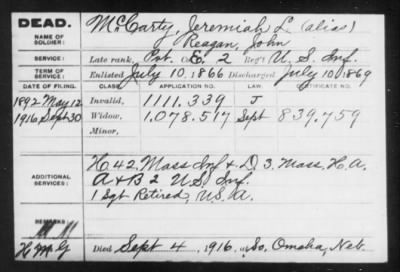 DEAD.
NAME OF SOLDIER: McCarty, Jeremiah L. (alias)
Reagan, John
SERVICE: Late rank, Pvt. Co E. 2 Reg't U. S. Inf.
TERM OF SERVICE: Enlisted July 10. 1866 Discharged July 10, 1869
DATE OF FILING. CLASS. APPLICATION NO. LAW. CERTIFICATE NO.
1892 May 12 Invalid, 1111.339 J
1916 Sept 30 Widow, 1.078.517 Sept 839.759
Minor,
ADDITIONAL SERVICES: H 42. Mass Inf & D. 3. Mass. H. A.
A & B 2 U.S. Inf.
1 Sgt Retired, U.S. A.
REMARKS:
H M G Died Sept 4, 1916, So. Omaha, Neb.